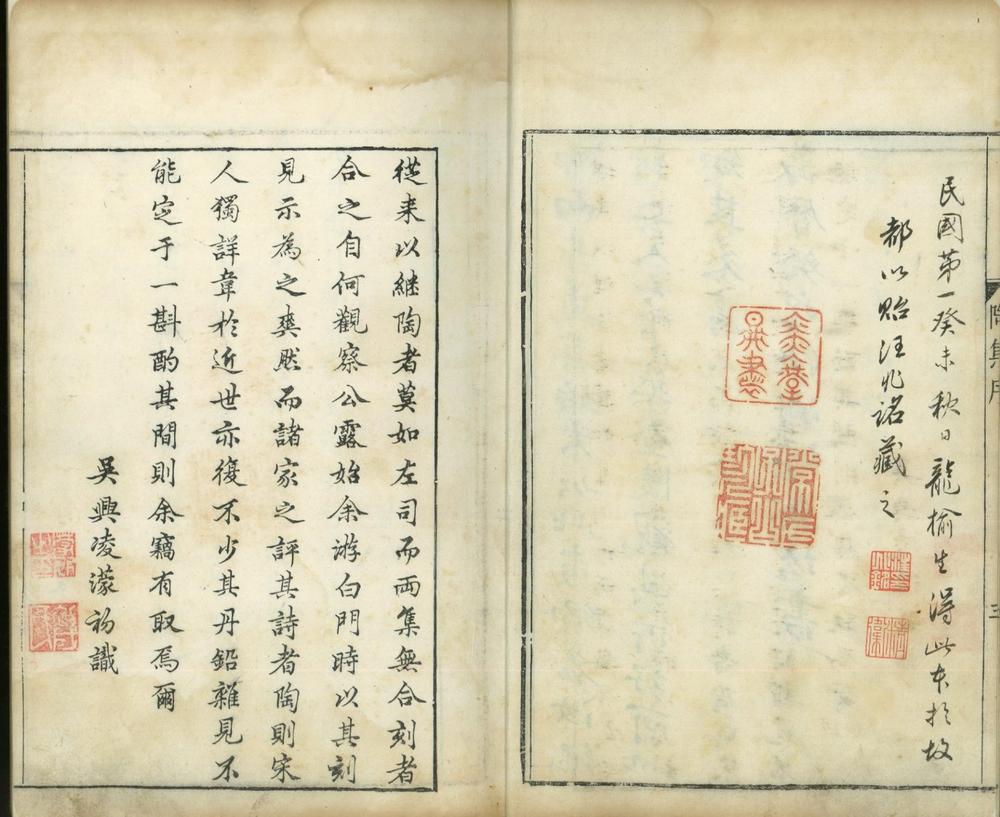 民國第一癸未秋日龍榆生得此本於故
都以貽汪兆銘藏之
陶集序
從来以継陶者莫如左司而兩集無合刻者
合之自何觀察公露始余游白門時以其刻
見示為之爽然而諸家之評其詩者陶則宋
人獨詳韋於近世亦復不少其丹鉛雜見不
能定于一斟酌其間則余竊有取焉爾
吳興凌濛初識